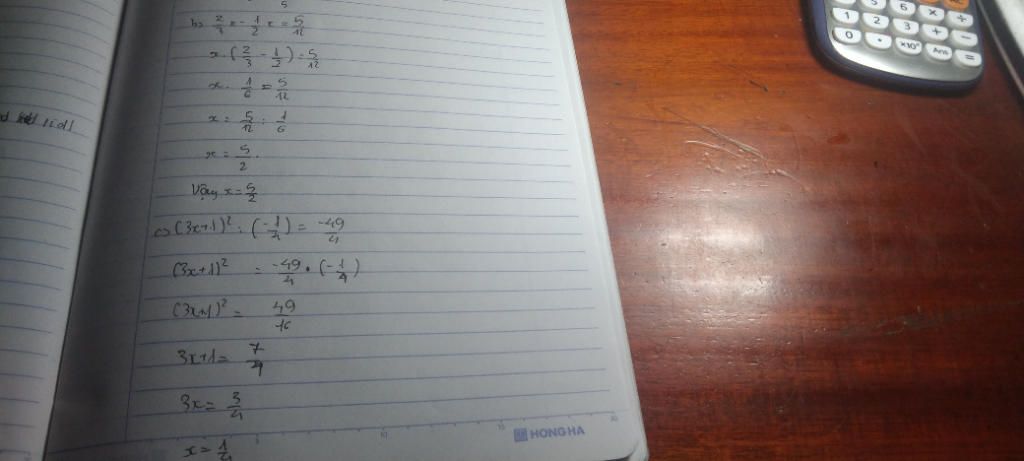 5
b) 2/3 x - 1/2 x = 5/12
x . (2/3 - 1/2) = 5/12
x . 1/6 = 5/12
x = 5/12 : 1/6
x = 5/2 .
Vậy x = 5/2
c) (3x+1)² : (-1/4) = -49/4
(3x+1)² = -49/4 . (-1/4)
(3x+1)² = 49/16
3x+1 = 7/4
3x = 3/4
x = 1/4
5 10 15 20
HONG HA
5 6 × ÷
1 2 3 + −
0 • ×10ˣ Ans =